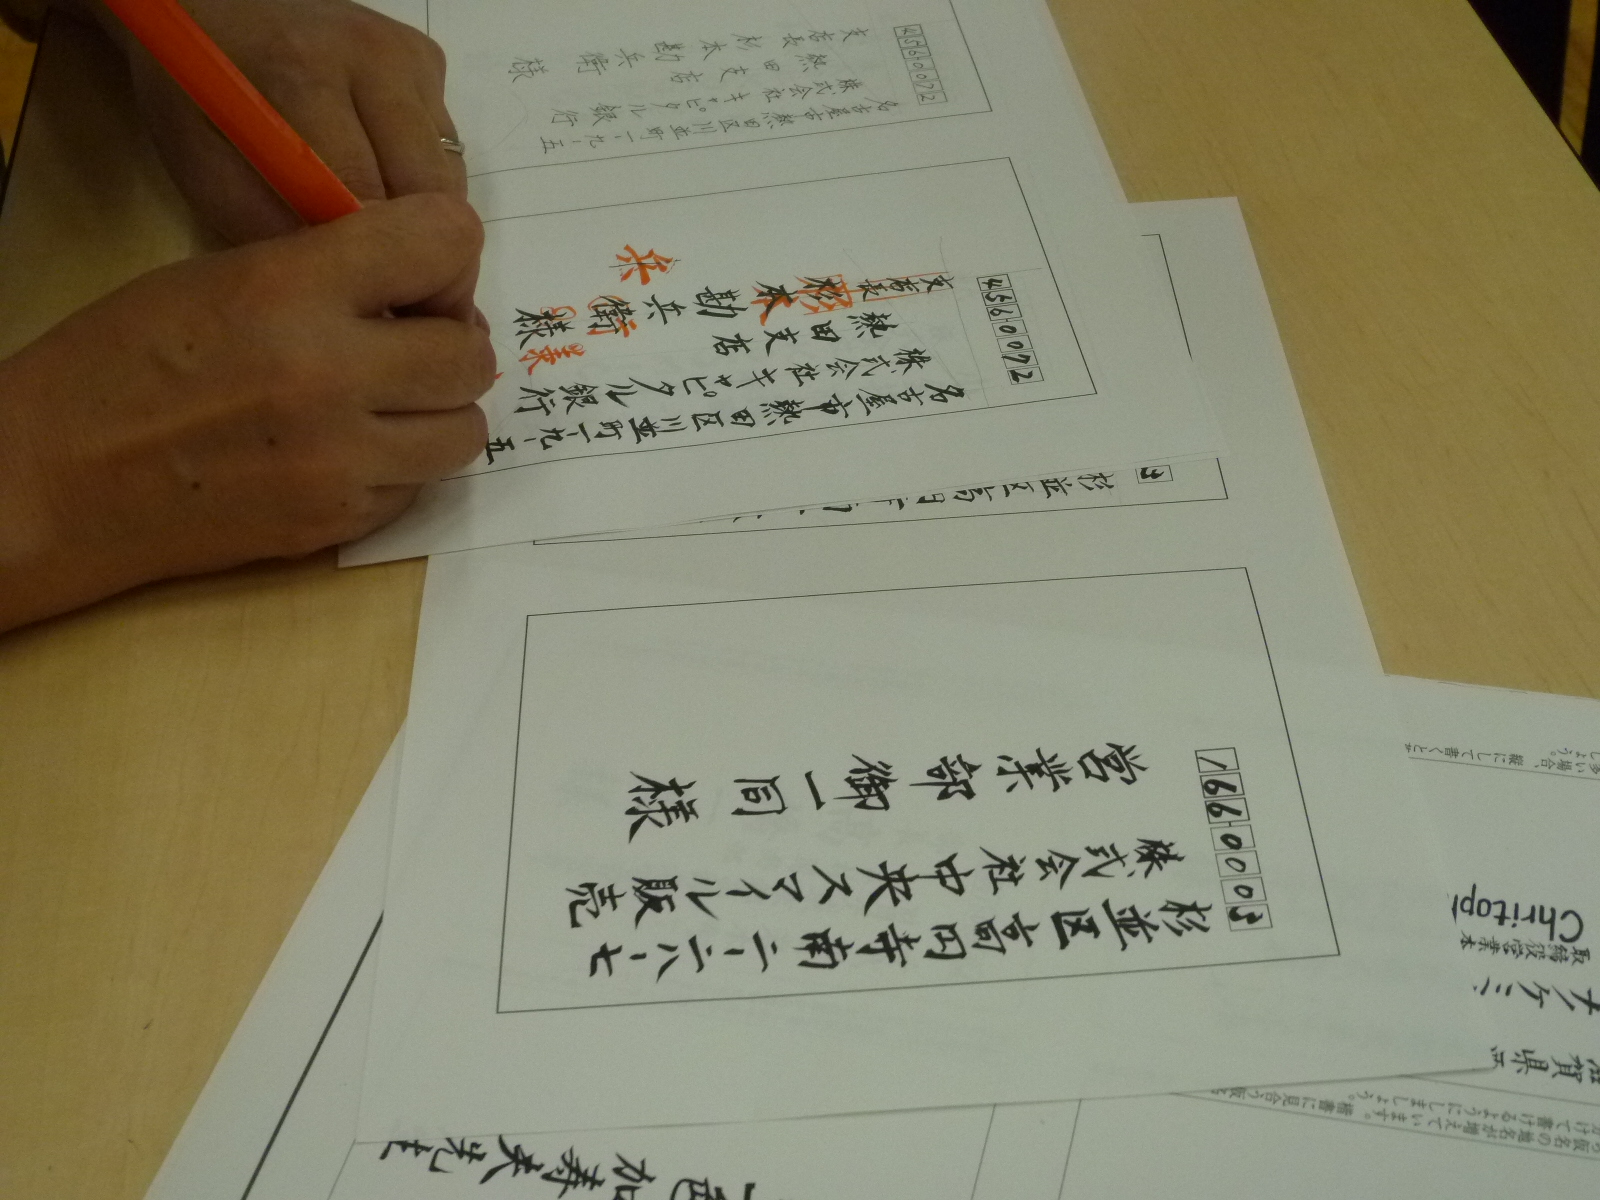 4560072
名古屋市熱田区川並町一ー九ー五
株式会社キャピタル銀行
熱田支店
支店長 杉本勘兵衛様
4560072
名古屋市熱田区川並町一ー九ー五
株式会社キャピタル銀行
熱田支店
支店長 杉本勘兵衛様
兵
杉並区高円寺
1660003
杉並区高円寺南二ー二六ー七
株式会社中央スマイル販売
営業部御一同様
Chritop
取締役営業本
ナノケミ
賀県